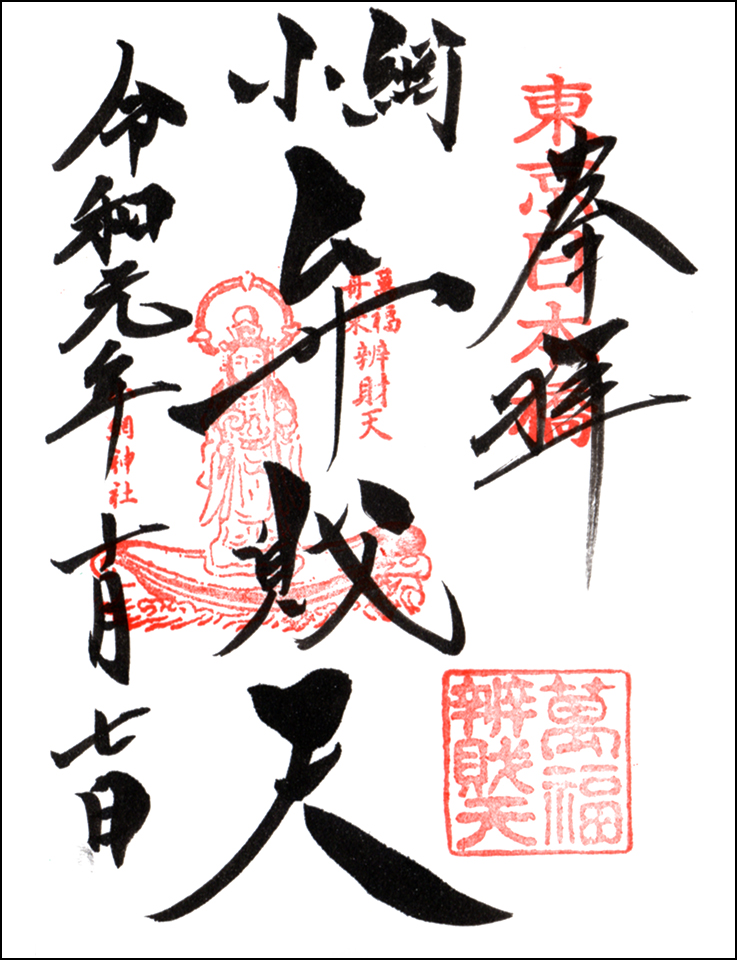 東京日本橋
奉拝
小網
弁財天
萬福
舟乗
辨財天
小網神社
令和元年十月七日
萬福
辨財天